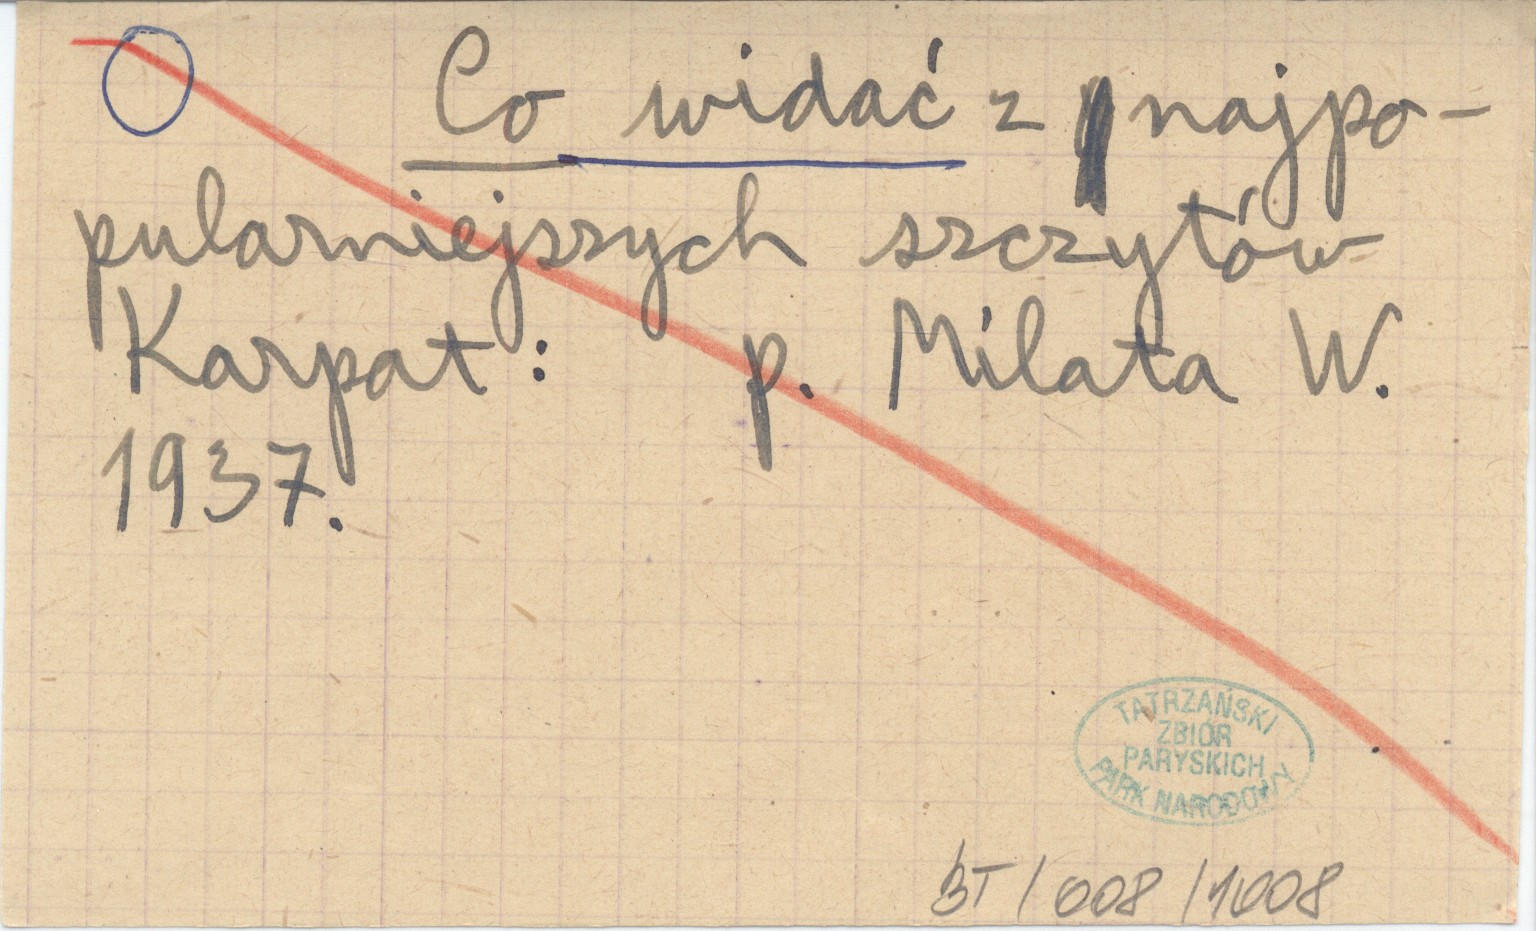 Co widać z najpo-
pularniejszych szczytów
Karpat: p. Milata W.
1937.
TATRZAŃSKI
ZBIÓR
PARYSKICH
PARK NARODOWY
BT/008/1008